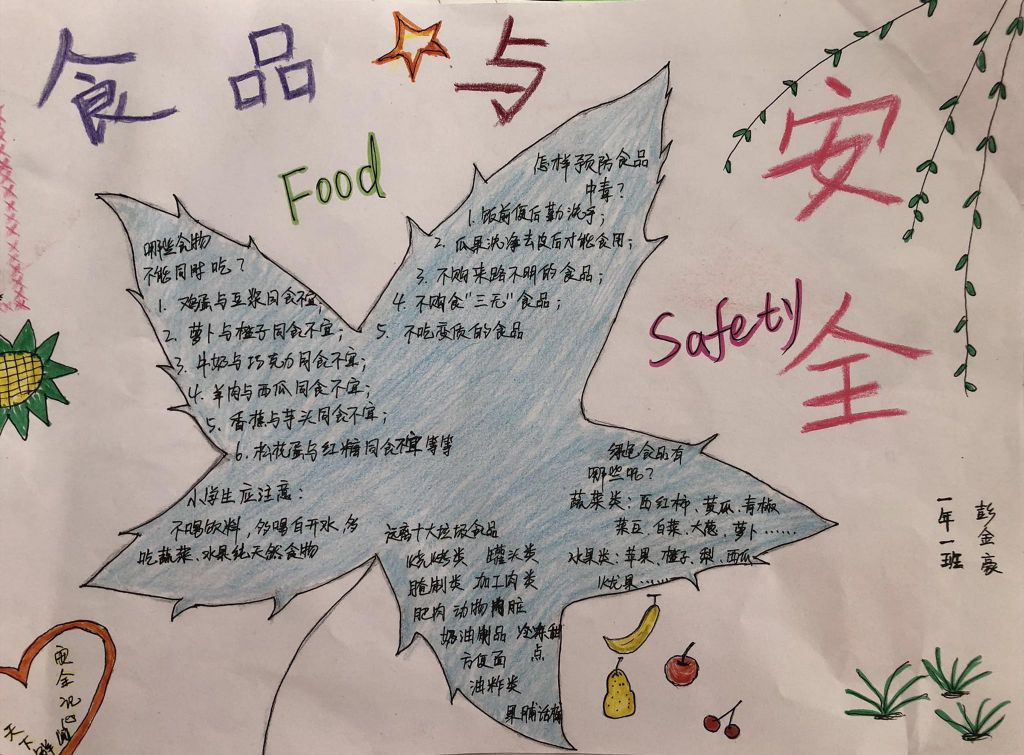 食品与
安全
Food
Safety
哪些食物
不能同时吃？
1. 鸡蛋与豆浆同食不宜;
2. 萝卜与橙子同食不宜;
3. 牛奶与巧克力同食不宜;
4. 羊肉与西瓜同食不宜;
5. 香蕉与芋头同食不宜;
6. 松花蛋与红糖同食不宜等等
怎样预防食品
中毒？
1. 饭前便后勤洗手;
2. 瓜果洗净去皮后才能食用;
3. 不购来路不明的食品;
4. 不购食"三无"食品;
5. 不吃变质的食品
小学生应注意：
不喝饮料，多喝白开水，多
吃蔬菜、水果纯天然食物
远离十大垃圾食品
烧烤类 罐头类
腌制类 加工肉类
肥肉 动物内脏
奶油制品 冷冻甜
方便面 点
油炸类
果脯话梅
绿色食品有
哪些呢？
蔬菜类：西红柿、黄瓜、青椒
菜豆、白菜、大葱、萝卜……
水果类：苹果、橙子、梨、西瓜
火龙果……
彭金豪
一年一班
安全记心间
天下